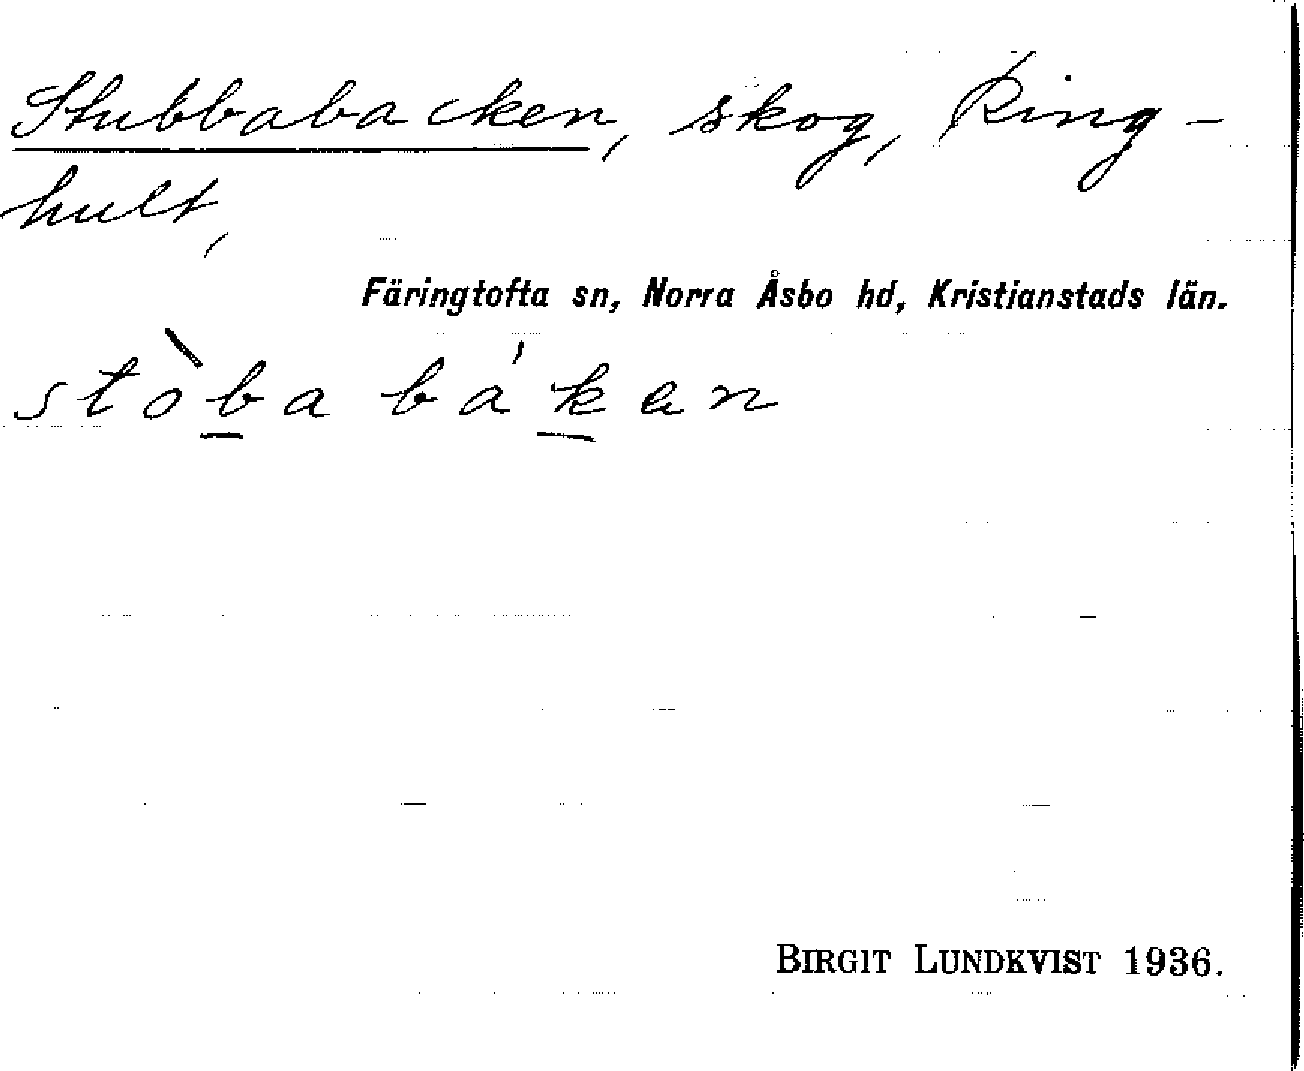 Stubbabacken, skog, Ring-
hult,
Färingtofta sn, Norra Åsbo hd, Kristianstads län.
stòba bákan
BIRGIT LUNDKVIST 1936.